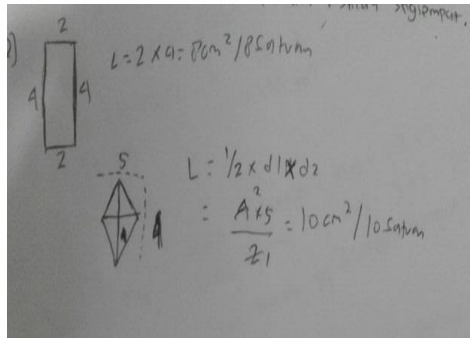 segiempat.
2
4 4
L = 2 x 4 = 8 cm² / 8 Satuan
2
5
L = 1/2 x d1 x d2
4
= 4² x 5 / 2₁ = 10 cm² / 10 Satuan